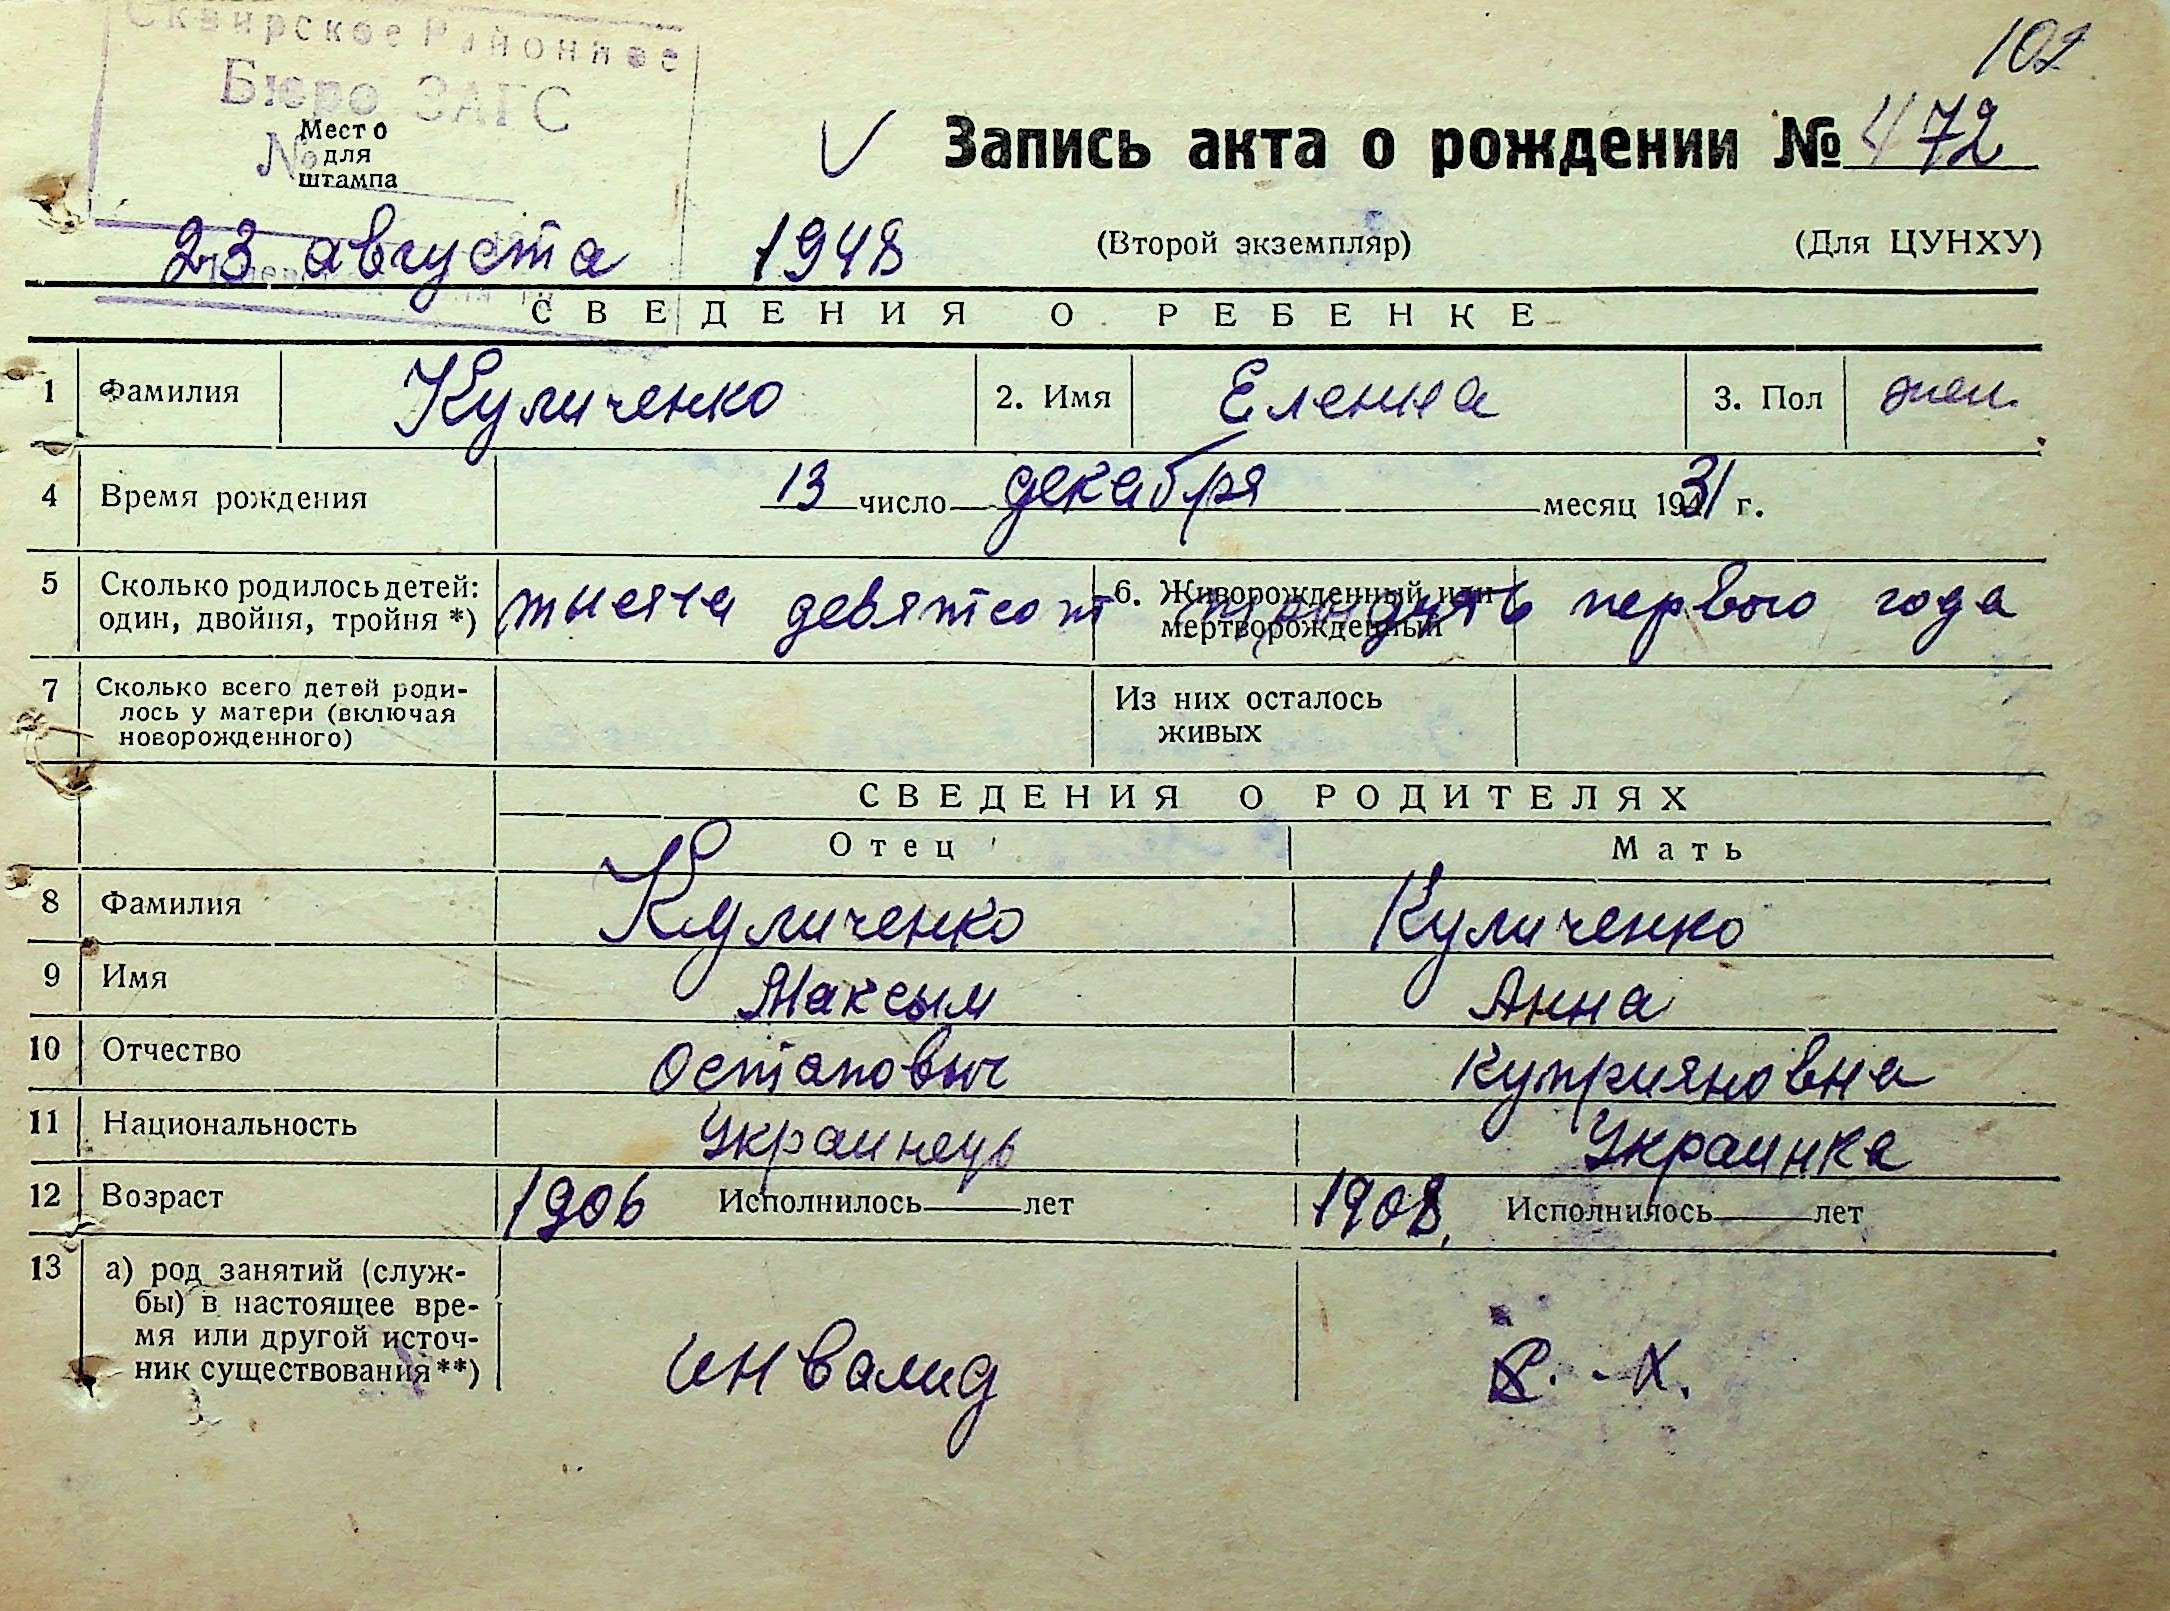 102
Сквирское Районное
Бюро ЗАГС
№
Место
для
штампа
Запись акта о рождении № 472
23 августа 1948
(Второй экземпляр) (Для ЦУНХУ)
СВЕДЕНИЯ О РЕБЕНКЕ
1 Фамилия Куличенко 2. Имя Еленна 3. Пол жен.
4 Время рождения 13 число декабря месяц 1931 г.
5 Сколько родилось детей: один, двойня, тройня *) тысяча девятсот 6. Живорожденный или мертворожденный тридцать первого года
7 Сколько всего детей роди-
лось у матери (включая
новорожденного)
Из них осталось
живых
СВЕДЕНИЯ О РОДИТЕЛЯХ
Отец Мать
8 Фамилия Куличенко Куличенко
9 Имя Максым Анна
10 Отчество Остаповыч Куприяновна
11 Национальность Украинець Украинка
12 Возраст 1906 Исполнилось лет 1908. Исполнилось лет
13 а) род занятий (служ-
бы) в настоящее вре-
мя или другой источ-
ник существования**)
инвалид
С. -Х.